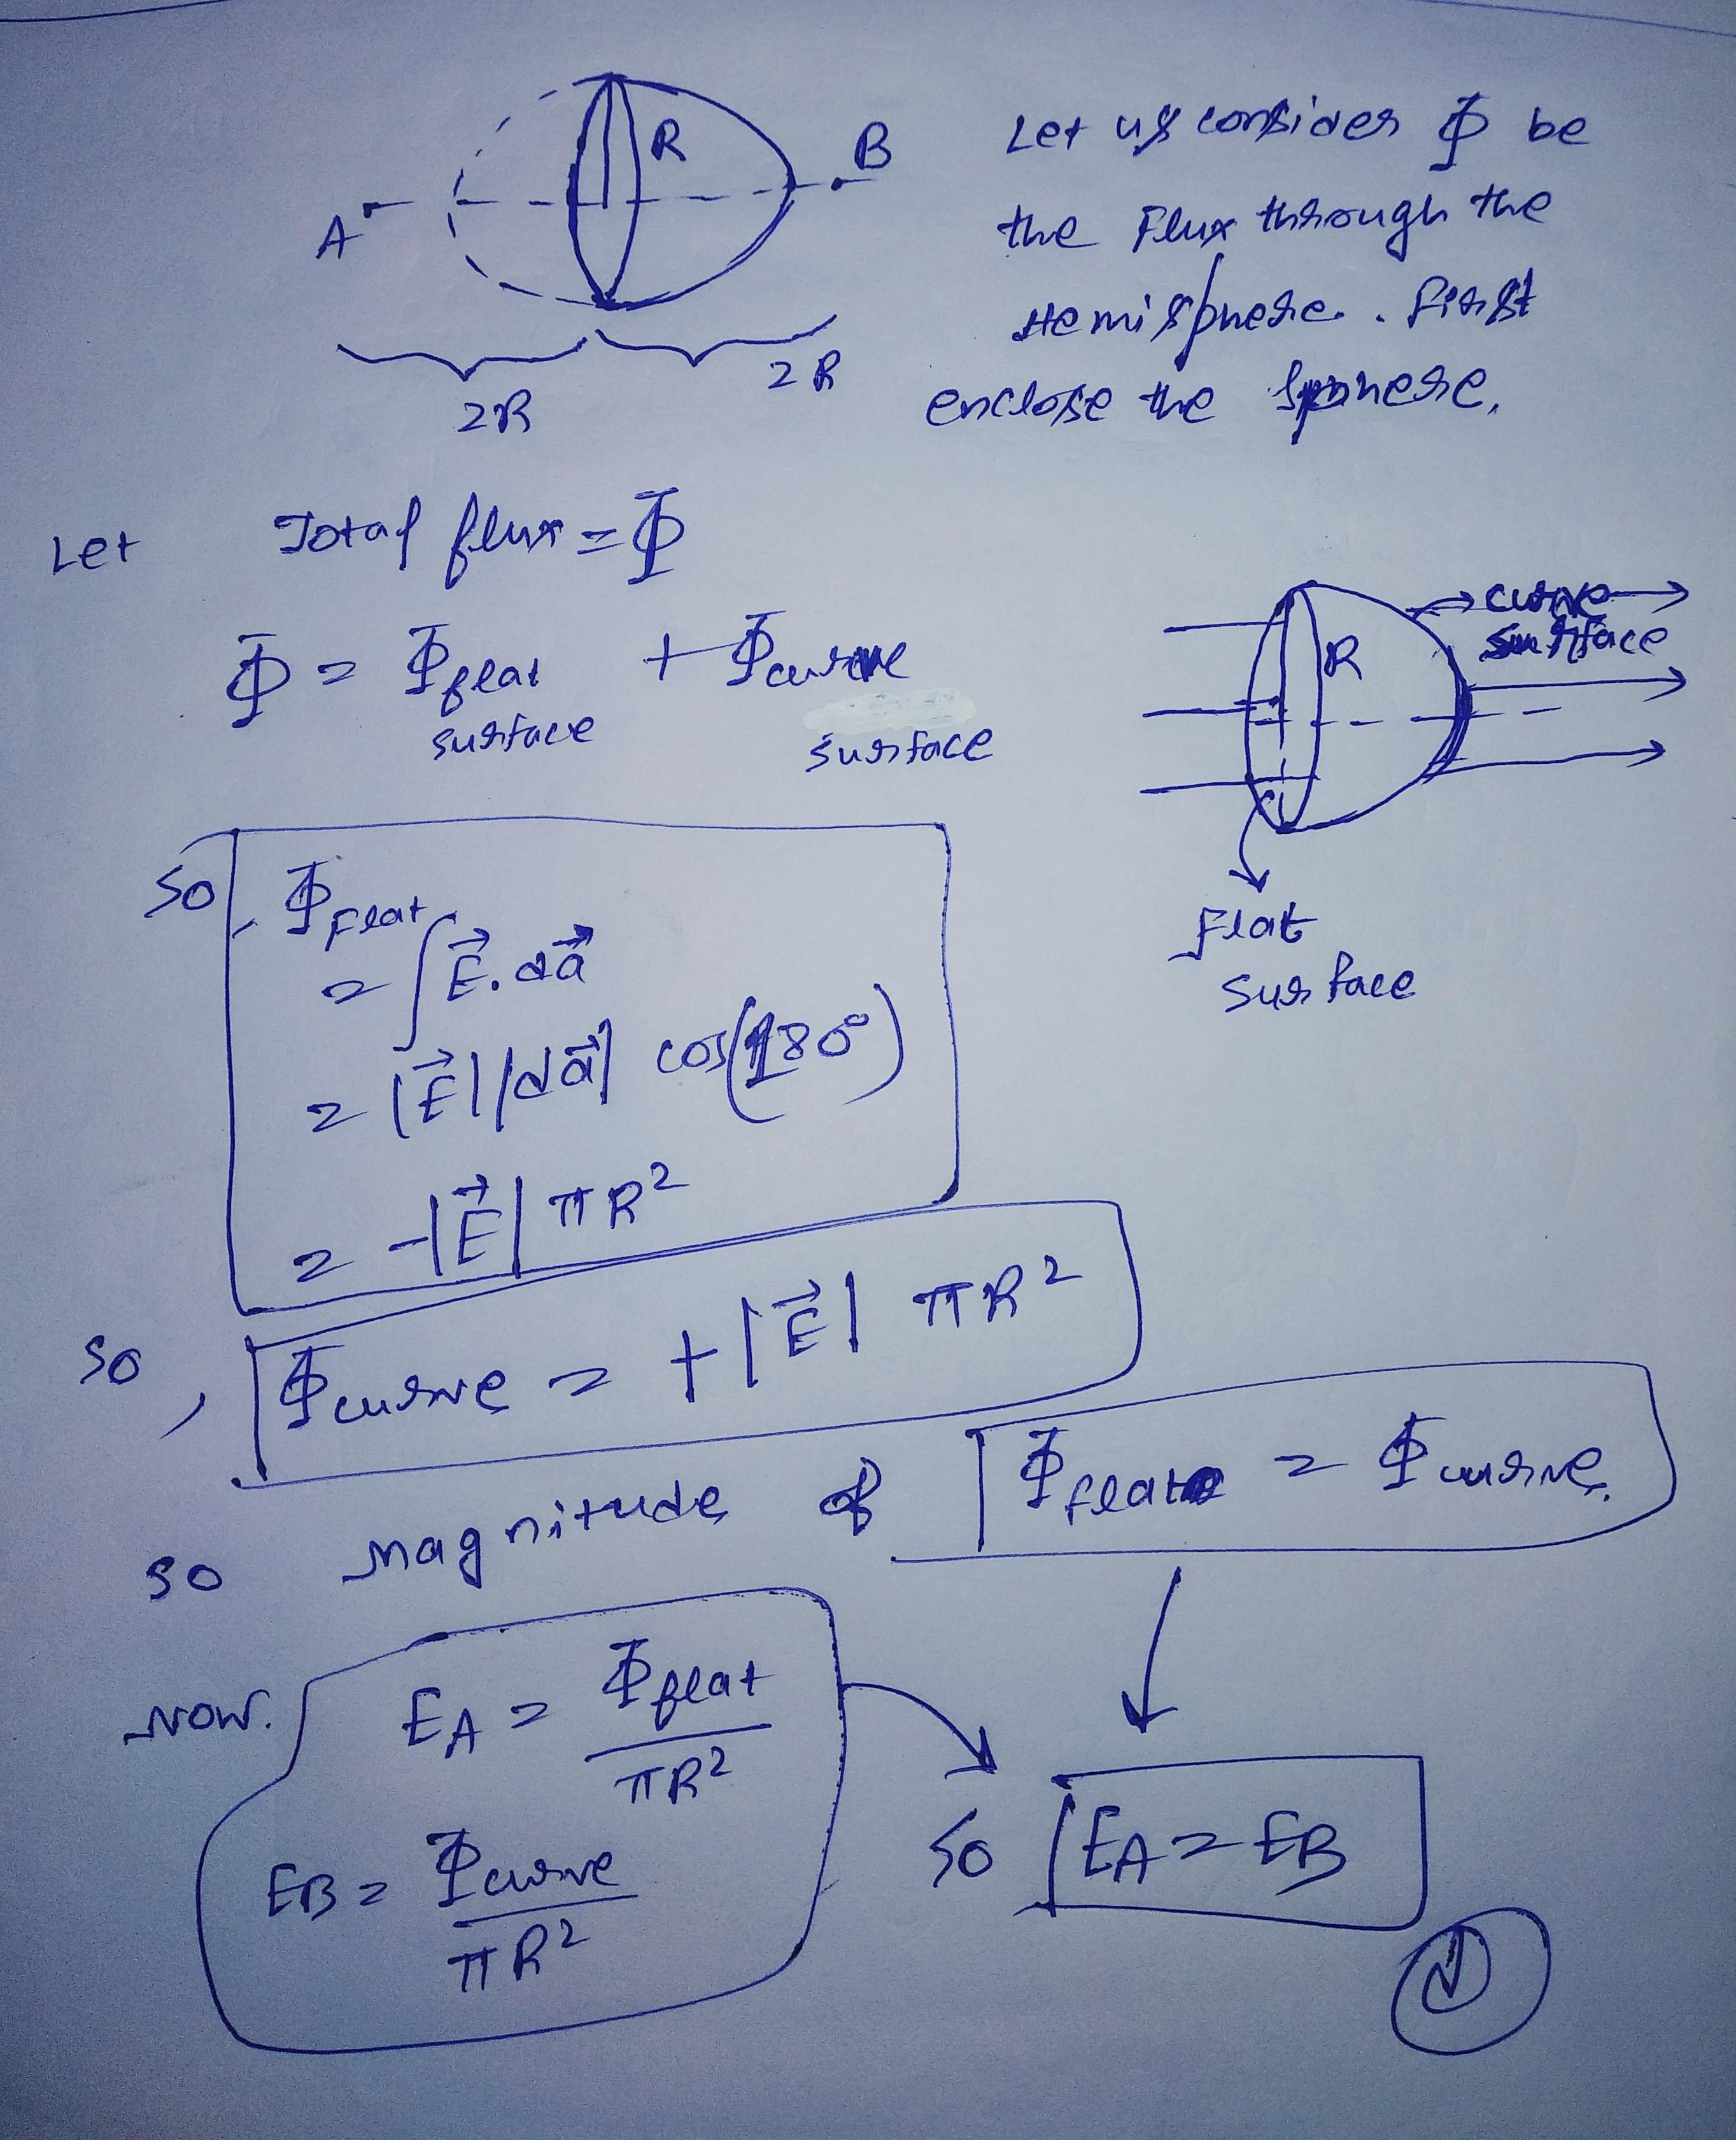 R
B
A
2R
2R
Let us consider Φ be
the Flux through the
Hemisphere. first
enclose the sphere.
Let Total flux = Φ
Φ = Φflat surface + Φcurve surface
→ curve surface
R
Flat surface
So, Φflat
= ∫E⃗.da⃗
= |E⃗||da⃗| cos(180°)
= -|E⃗| πR²
so, Φcurve = +|E⃗| πR²
so Magnitude of Φflat = Φcurve.
Now. EA = Φflat / πR²
EB = Φcurve / πR²
So EA = EB